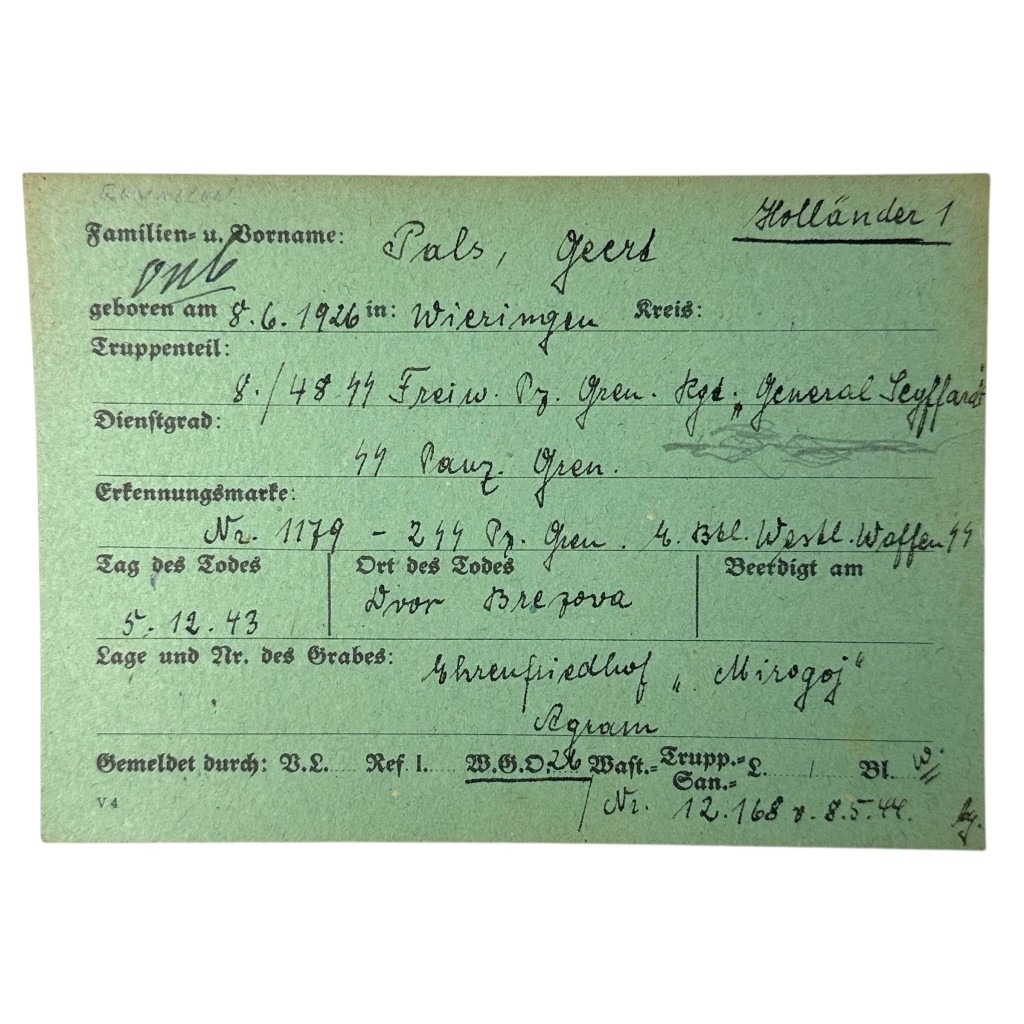 Holländer 1
Familien- u. Vorname: Pals, Geert
geboren am 8.6.1926 in: Wieringen Kreis:
Truppenteil:
8./48 SS Freiw. Pz. Gren. Rgt. „General Seyffardt
Dienstgrad:
SS Panz. Gren.
Erkennungsmarke:
Nr. 1179 - 2 SS Pz. Gren. E. Btl. Westl. Waffen SS
Tag des Todes Ort des Todes Beerdigt am
5.12.43 Dvor Brezova
Lage und Nr. des Grabes: Ehrenfriedhof „Mirogoj“
Agram
Gemeldet durch: V.L. Ref. I. W.G.O. 26 Wast.= Trupp.= San.= L. / Bl. W
V 4 Nr. 12.168 v. 8.5.44.